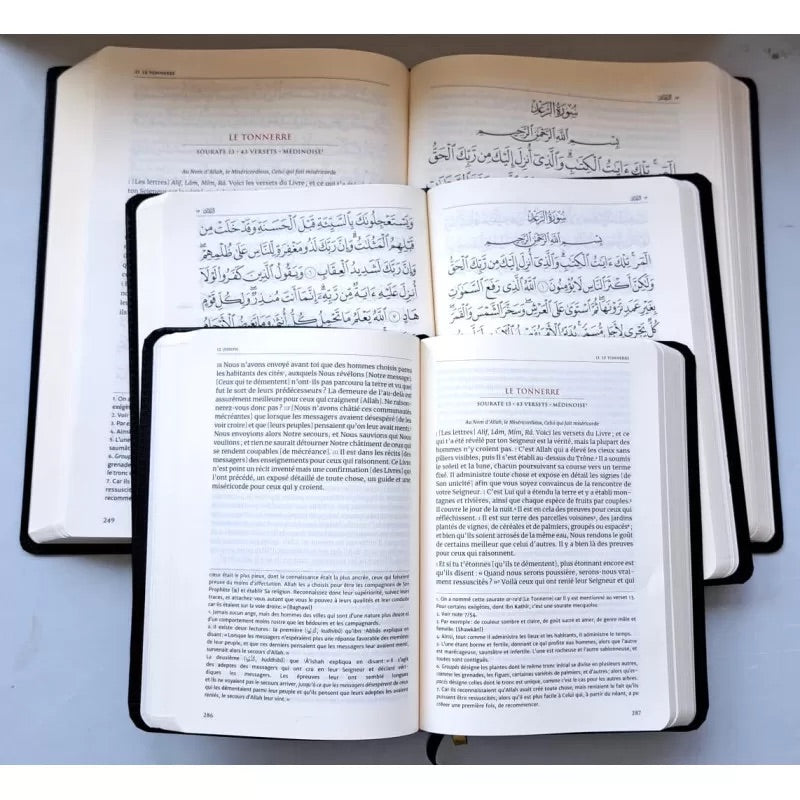 13. LE TONNERRE
LE TONNERRE
SOURATE 13 • 43 VERSETS • MÉDINOISE¹
Au Nom d'Allah, le Miséricordieux, Celui qui fait miséricorde
[Les lettres] Alif, Lâm, Mîm, Râ. Voici les versets du Livre ; et ce qui
ton Seigneur
1. On a
exégètes,
2. Voir
3. Par e
4. Ainsi
5. L'une
saumât
6. Group
grenade
le tronc
7. Car ils
ressuscit
249
سورة الرعد
بسم الله الرحمن الرحيم
المر تلك ءايت الكتب والذى أنزل إليك من ربك الحق
ويستعجلونك بالسيئة قبل الحسنة وقد خلت من
قبلهم المثلت وإن ربك لذو مغفرة للناس على ظلمهم
وإن ربك لشديد العقاب ويقول الذين كفروا لولا
أنزل عليه ءاية من ربه إنما أنت منذر ولكل قوم
هاد الله يعلم ما تحمل كل أنثى وما تغيض الأرحام
سورة الرعد
بسم الله الرحمن الرحيم
المر تلك ءايت الكتب والذى أنزل إليك من ربك الحق
ولكن أكثر الناس لا يؤمنون الله الذى رفع السموت
بغير عمد ترونها ثم استوى على العرش وسخر الشمس والقمر
كل يجرى لأجل مسمى يدبر الأمر يفصل الأيت
12. JOSEPH
Nous n'avons envoyé avant toi que des hommes choisis parmi
les habitants des cités², auxquels Nous révélions [Notre message].
[Ceux qui te démentent] n'ont-ils pas parcouru la terre et vu quel
fut le sort de leurs prédécesseurs ? La demeure de l'au-delà est
assurément meilleure pour ceux qui craignent [Allah]. Ne raison-
nerez-vous donc pas ? [Nous n'avons châtié ces communautés
mécréantes] que lorsque les messagers avaient désespéré [de les
voir croire] et que [leurs peuples] pensaient qu'on leur avait menti.
Nous envoyions alors Notre secours, et Nous sauvions qui Nous
voulions ; et rien ne saurait détourner Notre châtiment de ceux qui
se rendent coupables [de mécréance]. Il est dans les récits [des
messagers] des enseignements pour ceux qui raisonnent. Ce Livre
n'est point un récit inventé mais une confirmation [des Livres] qui
l'ont précédé, un exposé détaillé de toute chose, un guide et une
miséricorde pour ceux qui y croient.
cœur était le plus pieux, dont la connaissance était la plus ancrée, ceux qui faisaient
preuve du moins d'affectation. Allah les a choisis pour être les compagnons de Son
Prophète (ﷺ) et établir Sa religion. Reconnaissez donc leur supériorité, suivez leurs
traces, et attachez-vous autant que vous le pouvez à leurs qualités et leur conduite
car ils étaient sur la voie droite. » (Baghawî)
1. Jamais aucun ange, mais des hommes des villes qui sont d'une nature plus douce et
d'un comportement moins rustre que les bédouins et les campagnards.
2. Il existe deux lectures : la première (kudhibû) qu'Ibn 'Abbâs expliqua en disant :
« Lorsque les messagers n'espéraient plus une réponse favorable des membres
de leur peuple, et que ces derniers pensaient que les messagers leur avaient menti,
surviendrait alors le secours d'Allah. »
La deuxième (kudhdhibû) que 'Â'ishah expliqua en disant : « Il s'agit
des adeptes des messagers qui ont cru en leur Seigneur et déclaré véri-
diques les messagers. Les épreuves leur ont semblé longues
et ils ne voyaient pas le secours arriver, jusqu'à ce que les messagers désespèrent de ceux
qui les démentaient parmi leur peuple et qu'ils pensent que leurs adeptes les avaient
reniés, le secours d'Allah leur vint. »
286
13. LE TONNERRE
LE TONNERRE
SOURATE 13 • 43 VERSETS • MÉDINOISE¹
Au Nom d'Allah, le Miséricordieux, Celui qui fait miséricorde
[Les lettres] Alif, Lâm, Mîm, Râ. Voici les versets du Livre ; et ce
qui t'a été révélé par ton Seigneur est la vérité, mais la plupart des
hommes n'y croient pas. C'est Allah qui a élevé les cieux sans
piliers visibles, puis S'est établi au-dessus du Trône. Il a soumis
le soleil et la lune, chacun poursuivant sa course vers un terme
fixé. Il administre toute chose et expose en détail les signes (de
Son unicité) afin que vous soyez convaincus de la rencontre de
votre Seigneur. C'est Lui qui a étendu la terre et y a établi mon-
tagnes et rivières, ainsi que chaque espèce de fruits par couples.
Il couvre le jour de la nuit. Il est en cela des preuves pour ceux qui
réfléchissent. Il est sur terre des parcelles voisines, des jardins
plantés de vignes, de céréales et de palmiers, groupés ou séparés ;
et bien qu'ils soient arrosés de la même eau, Nous rendons le goût
de certains meilleur que celui d'autres. Il y a bien là des preuves
pour ceux qui raisonnent.
Et si tu t'étonnes [qu'ils te démentent], plus étonnant encore est
qu'ils disent : « Quand nous serons poussière, serons-nous vrai-
ment ressuscités ? » Voilà ceux qui ont renié leur Seigneur et qui
1. On a nommé cette sourate ar-ra'd (Le Tonnerre) car Il y est mentionné au verset 13.
Pour certains exégètes, dont Ibn Kathîr, c'est une sourate mecquoise.
2. Voir note 7/54.
3. Par exemple : de couleur sombre et claire, de goût sucré et amer, de genre mâle et
femelle. (Shawkânî)
4. Ainsi, tout comme Il administre les lieux et les habitants, Il administre le temps.
5. L'une étant bonne et fertile, donnant ce qui profite aux hommes, alors que l'autre
est marécageuse, saumâtre et infertile. L'une est rocheuse et l'autre sablonneuse, et
toutes sont contiguës.
6. Groupés désigne les plantes dont le même tronc initial se divise en plusieurs autres,
comme les grenades, les figues, certaines variétés de palmiers, et d'autres alors qu'es-
pacés désigne celles dont le tronc est unique, comme c'est le cas pour les autres arbres.
7. Car ils reconnaissaient qu'Allah avait créé toute chose, mais reniaient le fait qu'ils
puissent être ressuscités, alors qu'il est plus facile à Celui qui, à partir du néant, a pu
créer une première fois, de recommencer.
287